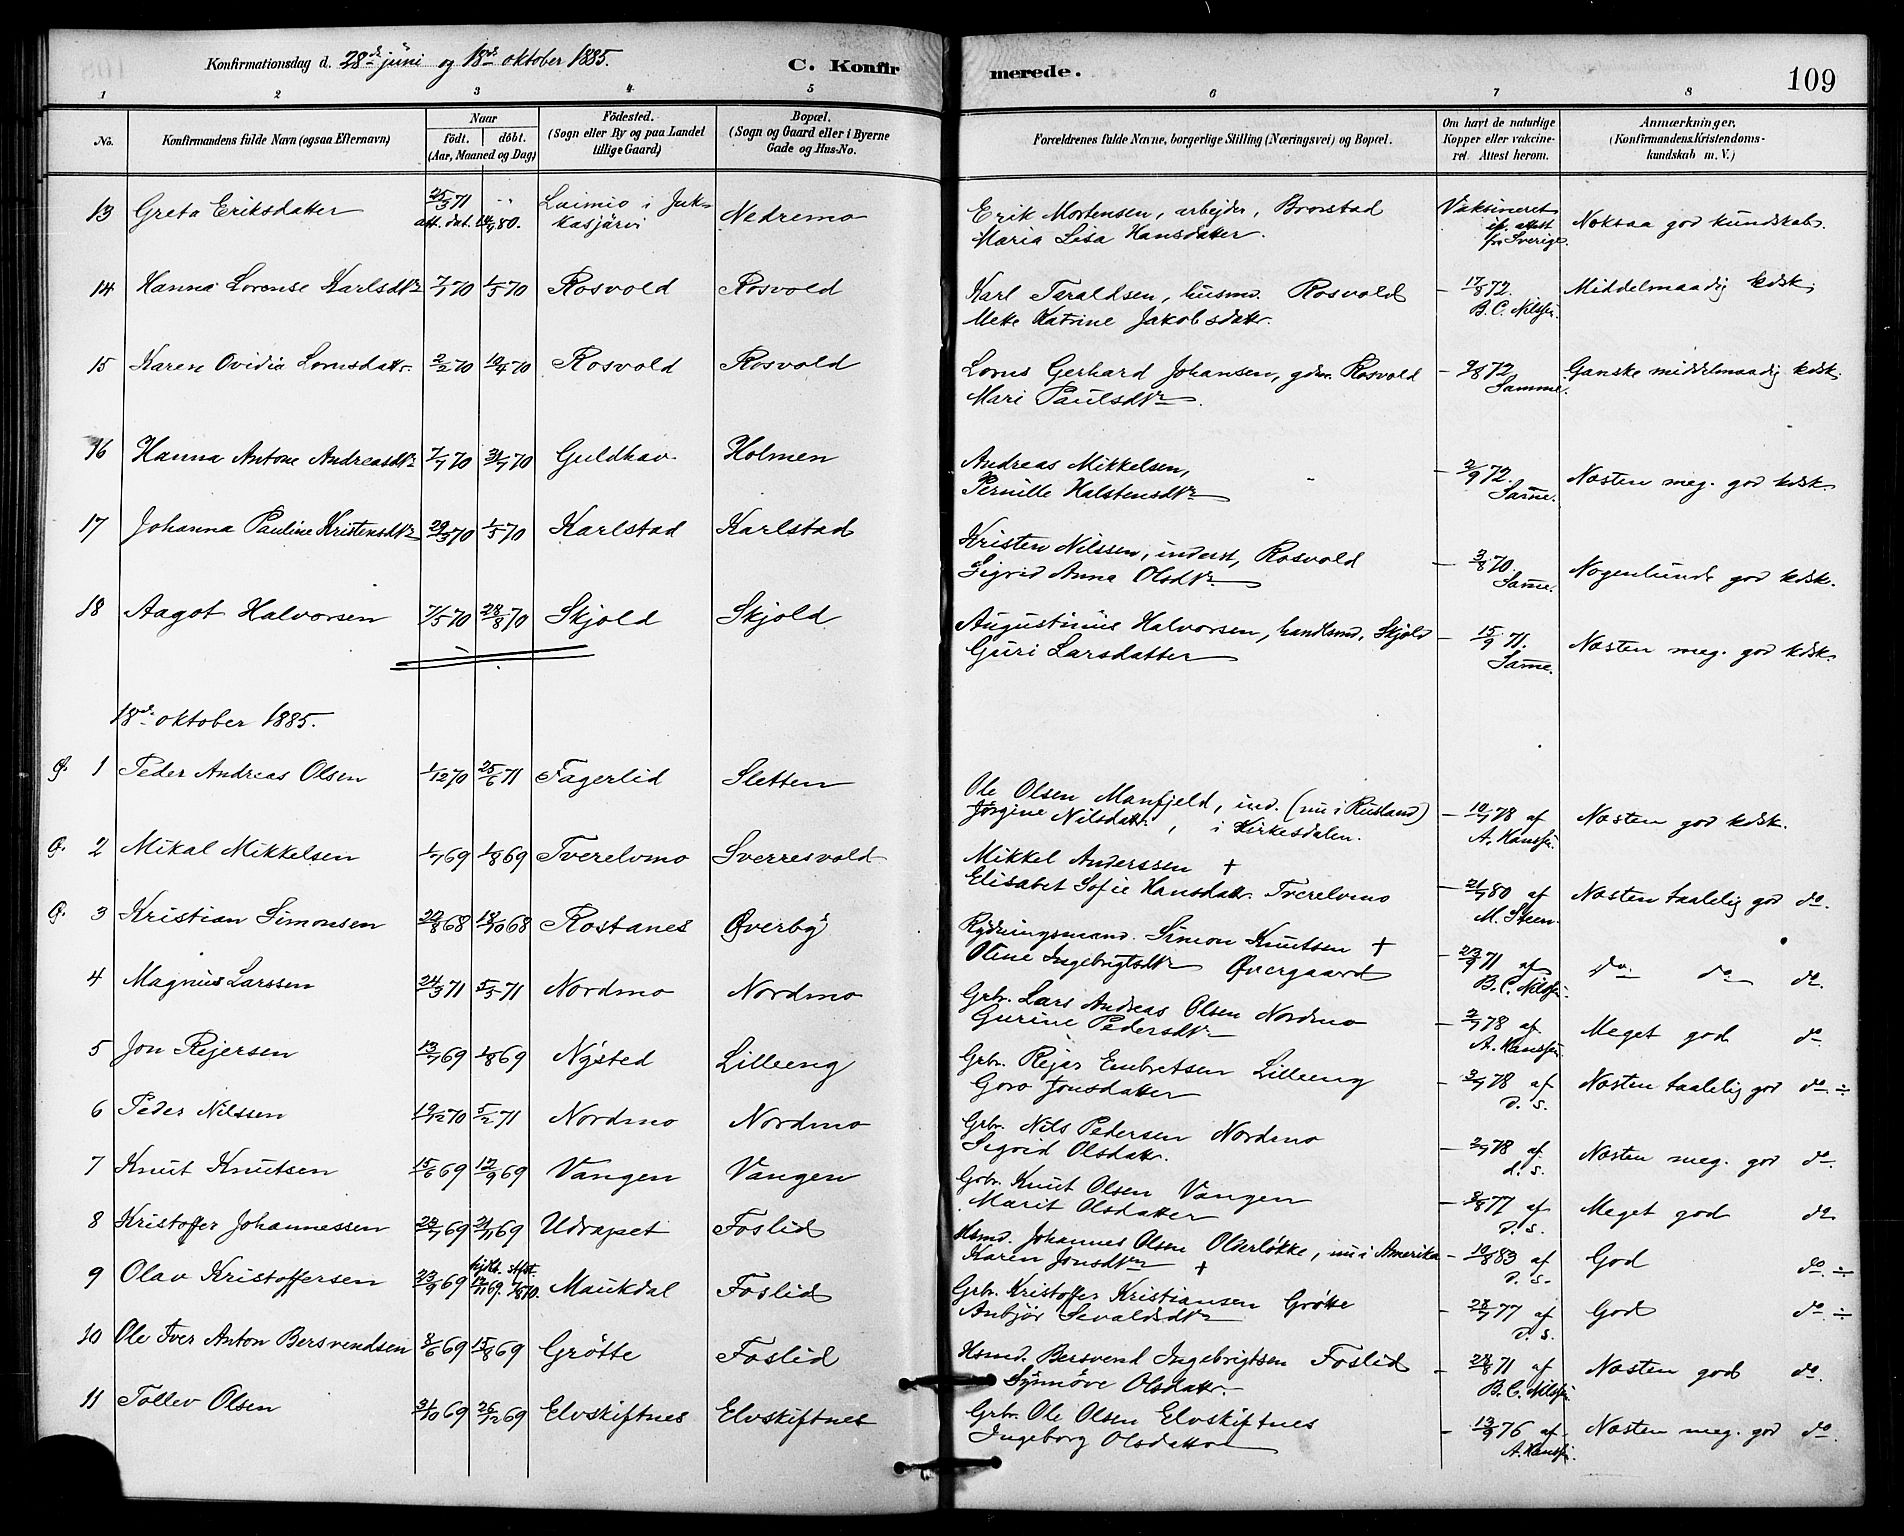 Konfirmationsdag d. 28de juni og 18de oktober 1885. C. Konfirmerede. 109
1 2 3 4 5 6 7 8
No. Konfirmandens fulde Navn (ogsaa Efternavn) Naar födt. döbt. (Aar, Maaned og Dag) Födested. (Sogn eller By og paa Landet tillige Gaard) Bopæl. (Sogn og Gaard eller i Byerne Gade og Hus-No. Forældrenes fulde Navne, borgerlige Stilling (Næringsvei) og Bopæl. Om havt de naturlige Kopper eller vakcineret. Attest herom. Anmærkninger. (Konfirmandens Kristendomskundskab m. V.)
13 Greta Eriksdatter 25/3 71 att. dat. 80. Laimio i Jukkasjärvi Nedremo Erik Mortensen, arbejder, Brorstad Vaksineret if. attest fr. Sverige. Noksaa god kundskab.
Maria Lisa Hansdatter.
14 Hanna Lorense Karlsdtr 7/1 70 1/5 70 Rosvold Rosvold Karl Taraldsen, husmd. Rosvold - 17/8 72. B.C. Nilssen. Middelmaadig kdsk.
Mette Katrine Jakobsdatr.
15 Karen Ovidia Lornsdatr. 2/2 70 19/4 70 Rosvold Rosvold Lorns Gerhard Johansen, gdbr. Rosvold - 9/8 72 Samme. Ganske middelmaadig kdsk.
Mari Paulsdtr.
16 Hanna Antone Andreasdtr 7/7 70 31/7 70 Guldhav Holmen Andreas Mikkelsen, - 2/9 72. Samme. Næsten meg. god kdsk.
Pernille Halstensdtr
17 Johanna Pauline Kristensdtr 29/3 70 1/5 70 Karlstad Karlstad Kristen Nilssen, inderst, Rosvold - 3/8 70. Samme. Nogenlunde god kdsk.
Sigrid Anna Olsdtr
18 Aagot Halvorsen 7/5 70 28/8 70 Skjold Skjold Augustinus Halvorsen, handlsmd. Skjold - 15/9 71. Samme. Næsten meg. god kdsk.
Guri Larsdatter
18de oktober 1885.
Ø. 1 Peder Andreas Olsen 1/12 70 25/6 71 Fagerlid Sletten Ole Olsen Manfjeld, ind. (nu i Rusland) - 10/7 78 af A. Hanssen. Næsten god kdsk.
Jørgine Nilsdatr., i Kirkesdalen.
Ø. 2 Mikal Mikkelsen 1/7 69 1/8 69 Tverelvmo Sverresvold Mikkel Anderssen † - 21/7 80 af M. Steen. Næsten taalelig god do.
Elisabet Sofie Hansdatr. Tverelvmo
Ø. 3 Kristian Simonsen 20/8 68 18/10 68 Rostanes Øverby Rydningsmand. Simon Knutsen † - 23/9 71 af B.C. Nilssen. do. do do.
Oline Ingebrigtsdtr Øvergaard
4 Magnus Larssen 24/3 71 5/5 71 Nordmo Nordmo Grbr. Lars Andreas Olsen Nordmo - 2/7 78 af A. Hanssen. Meget god do
Gurine Pedersdtr
5 Jon Rejersen 13/7 69 1/8 69 Nysted Lilleeng Grbr. Rejer Embretsen Lilleeng - 2/7 78 af d. s. Næsten taalelig god do. ÷
Goro Jonsdatter
6 Peder Nilssen 19/12 70 5/2 71 Nordmo Nordmo Grbr. Nils Pedersen Nordmo - 2/7 78 af d. s. Næsten meg. god do.
Sigrid Olsdatr.
7 Knut Knutsen 15/6 69 12/9 69 Vangen Vangen Grbr. Knut Olsen Vangen - 8/8 77 af d. s. Meget god do
Marit Olsdatter
8 Kristoffer Johannessen 28/7 69 21/11 69 Udrapet Foslid Husmd. Johannes Olsen Olderløkke, nu i Amerika - 10/8 83 af d. s. God do. ÷
Karen Jonsdtr †
9 Olav Kristoffersen 23/9 69 hjdb. 12/11 69. stfst. 7/8 70. Maukdal Foslid Grbr. Kristoffer Kristiansen Grøtte - 28/7 77 af d. s. God do. ÷
Anbjør Sevaldsdtr
10 Ole Iver Anton Bersvendsen 8/6 69 15/8 69 Grötte Foslid Husmd. Bersvend Ingebrigtsen Foslid - 28/8 71 af B.C. Nilssen Næsten god do.
Synnöve Olsdatr.
11 Tollev Olsen 31/10 69 26/12 69 Elvskiftnes Elvskiftnes Grbr. Ole Olsen Elvskiftnes - 13/9 76 af A. Hanssen. Næsten meg. god do.
Ingeborg Olsdatter